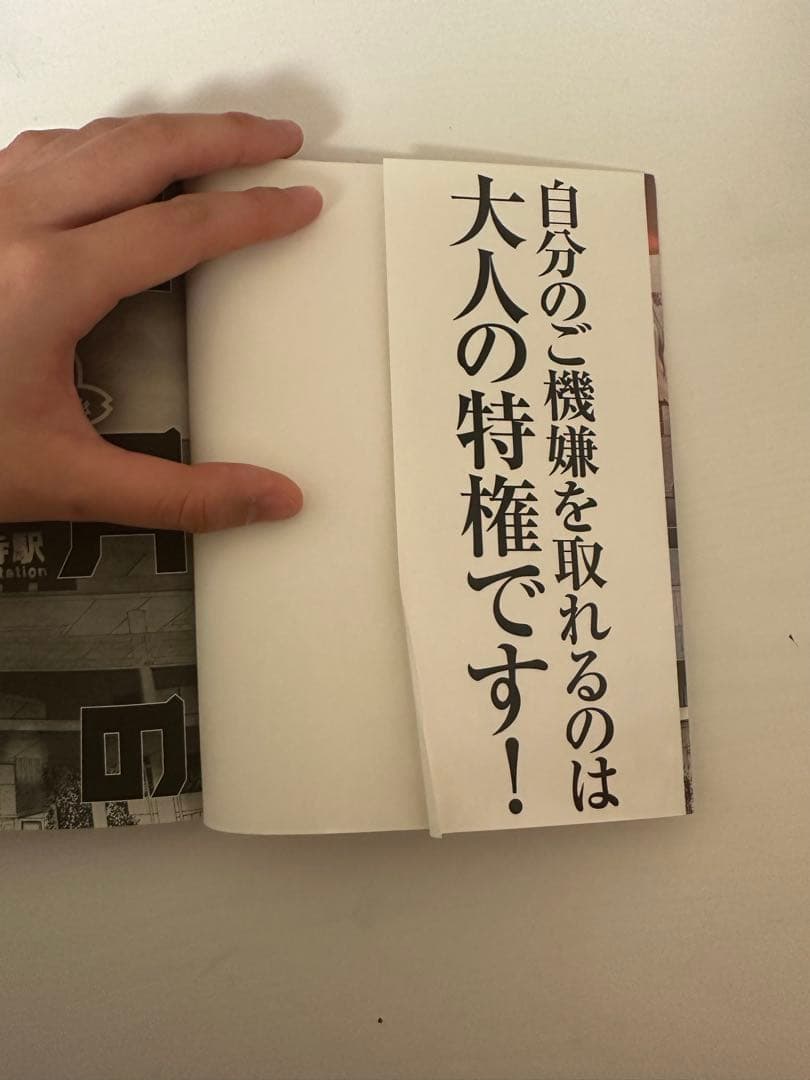 自分のご機嫌を取れるのは
大人の特権です!
駅
tation
の